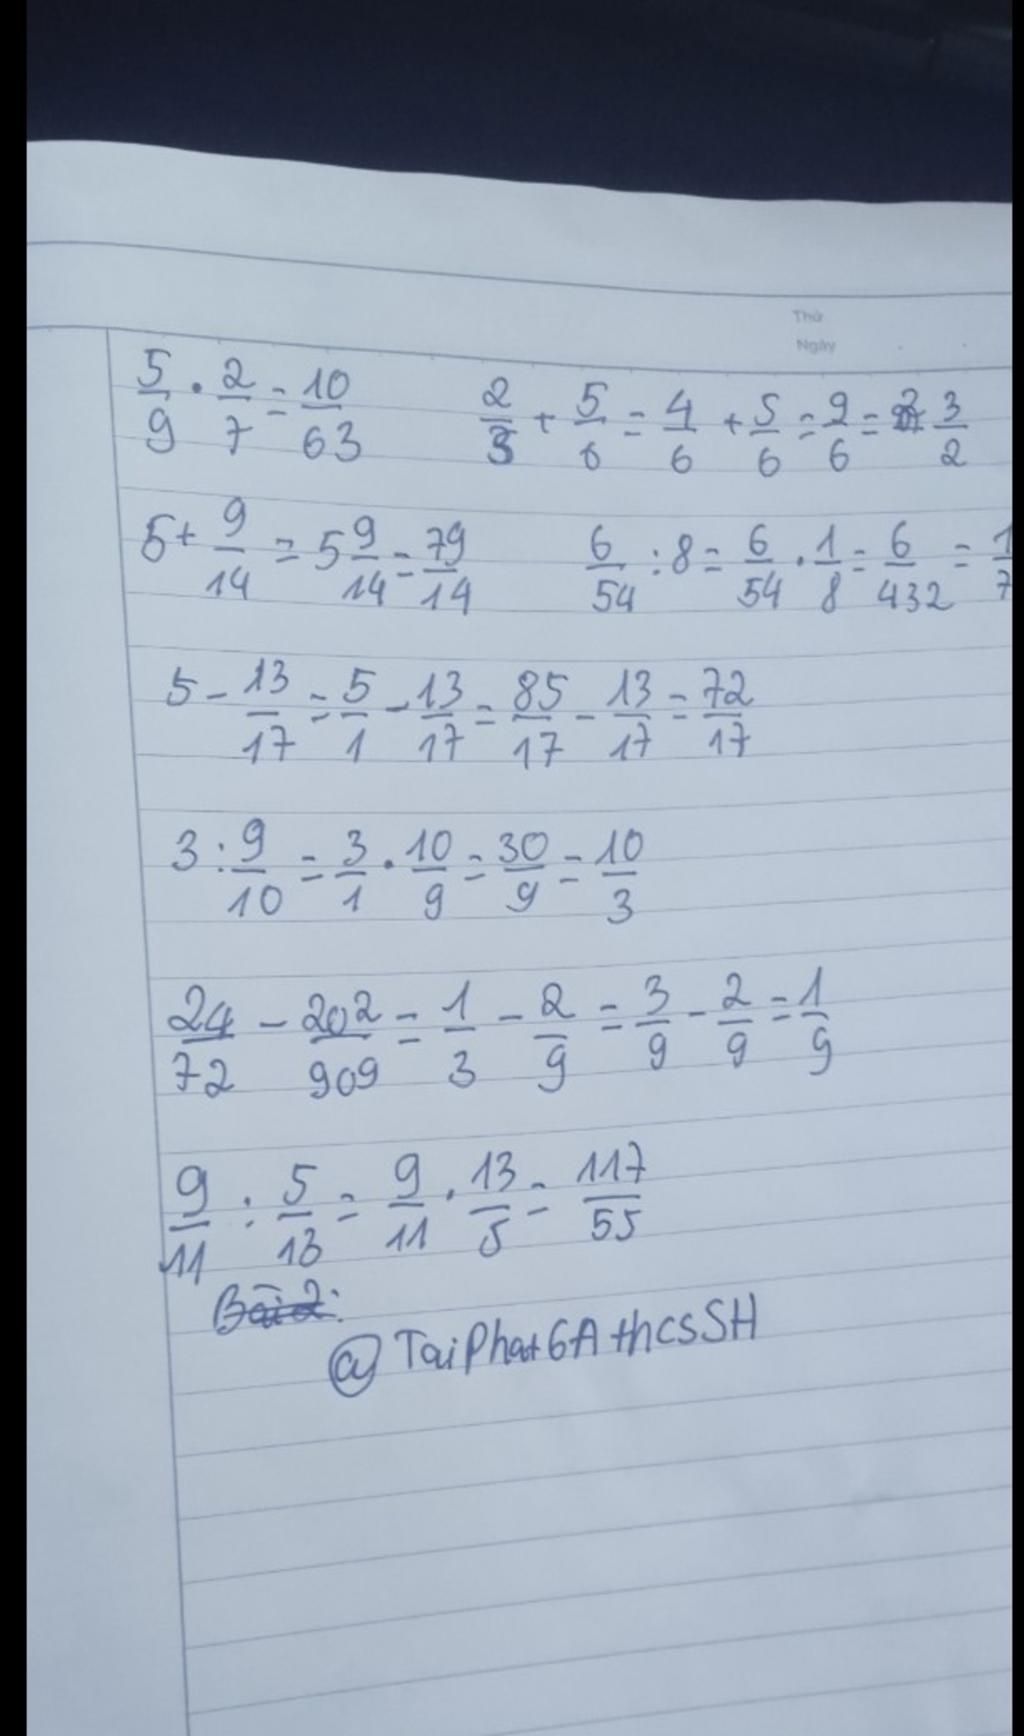 Thứ
Ngày
5/9 . 2/7 = 10/63    2/3 + 5/6 = 4/6 + 5/6 = 9/6 = 3/2
5 + 9/14 = 5 9/14 = 79/14    6/54 : 8 = 6/54 . 1/8 = 6/432 = 1/7
5 - 13/17 = 5/1 - 13/17 = 85/17 - 13/17 = 72/17
3 : 9/10 = 3/1 . 10/9 = 30/9 = 10/3
24/72 - 202/909 = 1/3 - 2/9 = 3/9 - 2/9 = 1/9
9/11 : 5/13 = 9/11 . 13/5 = 117/55
Bài 2:
@TaiPhat6A thcsSH